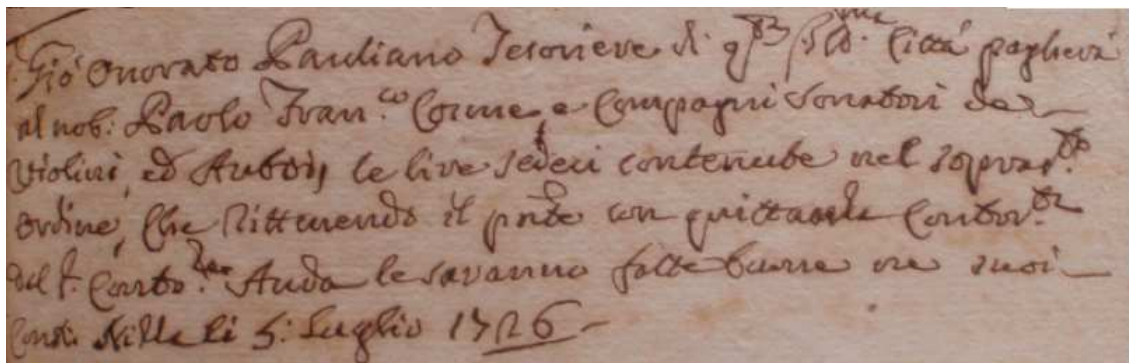 Gió Onorato Pauliano Tesoriere di q.sta Ill.ma Città pagherà
al nob: Paolo Fran.co Corme e Compagni Sonatori de
Violini, ed Auboii le lire sedeci contenute nel sopras.to
ordine, che rittenendo il pnte con quittanza
del Auda le saranno fatte buone ne suoi
Conti. Nizza li 5: Luglio 1726